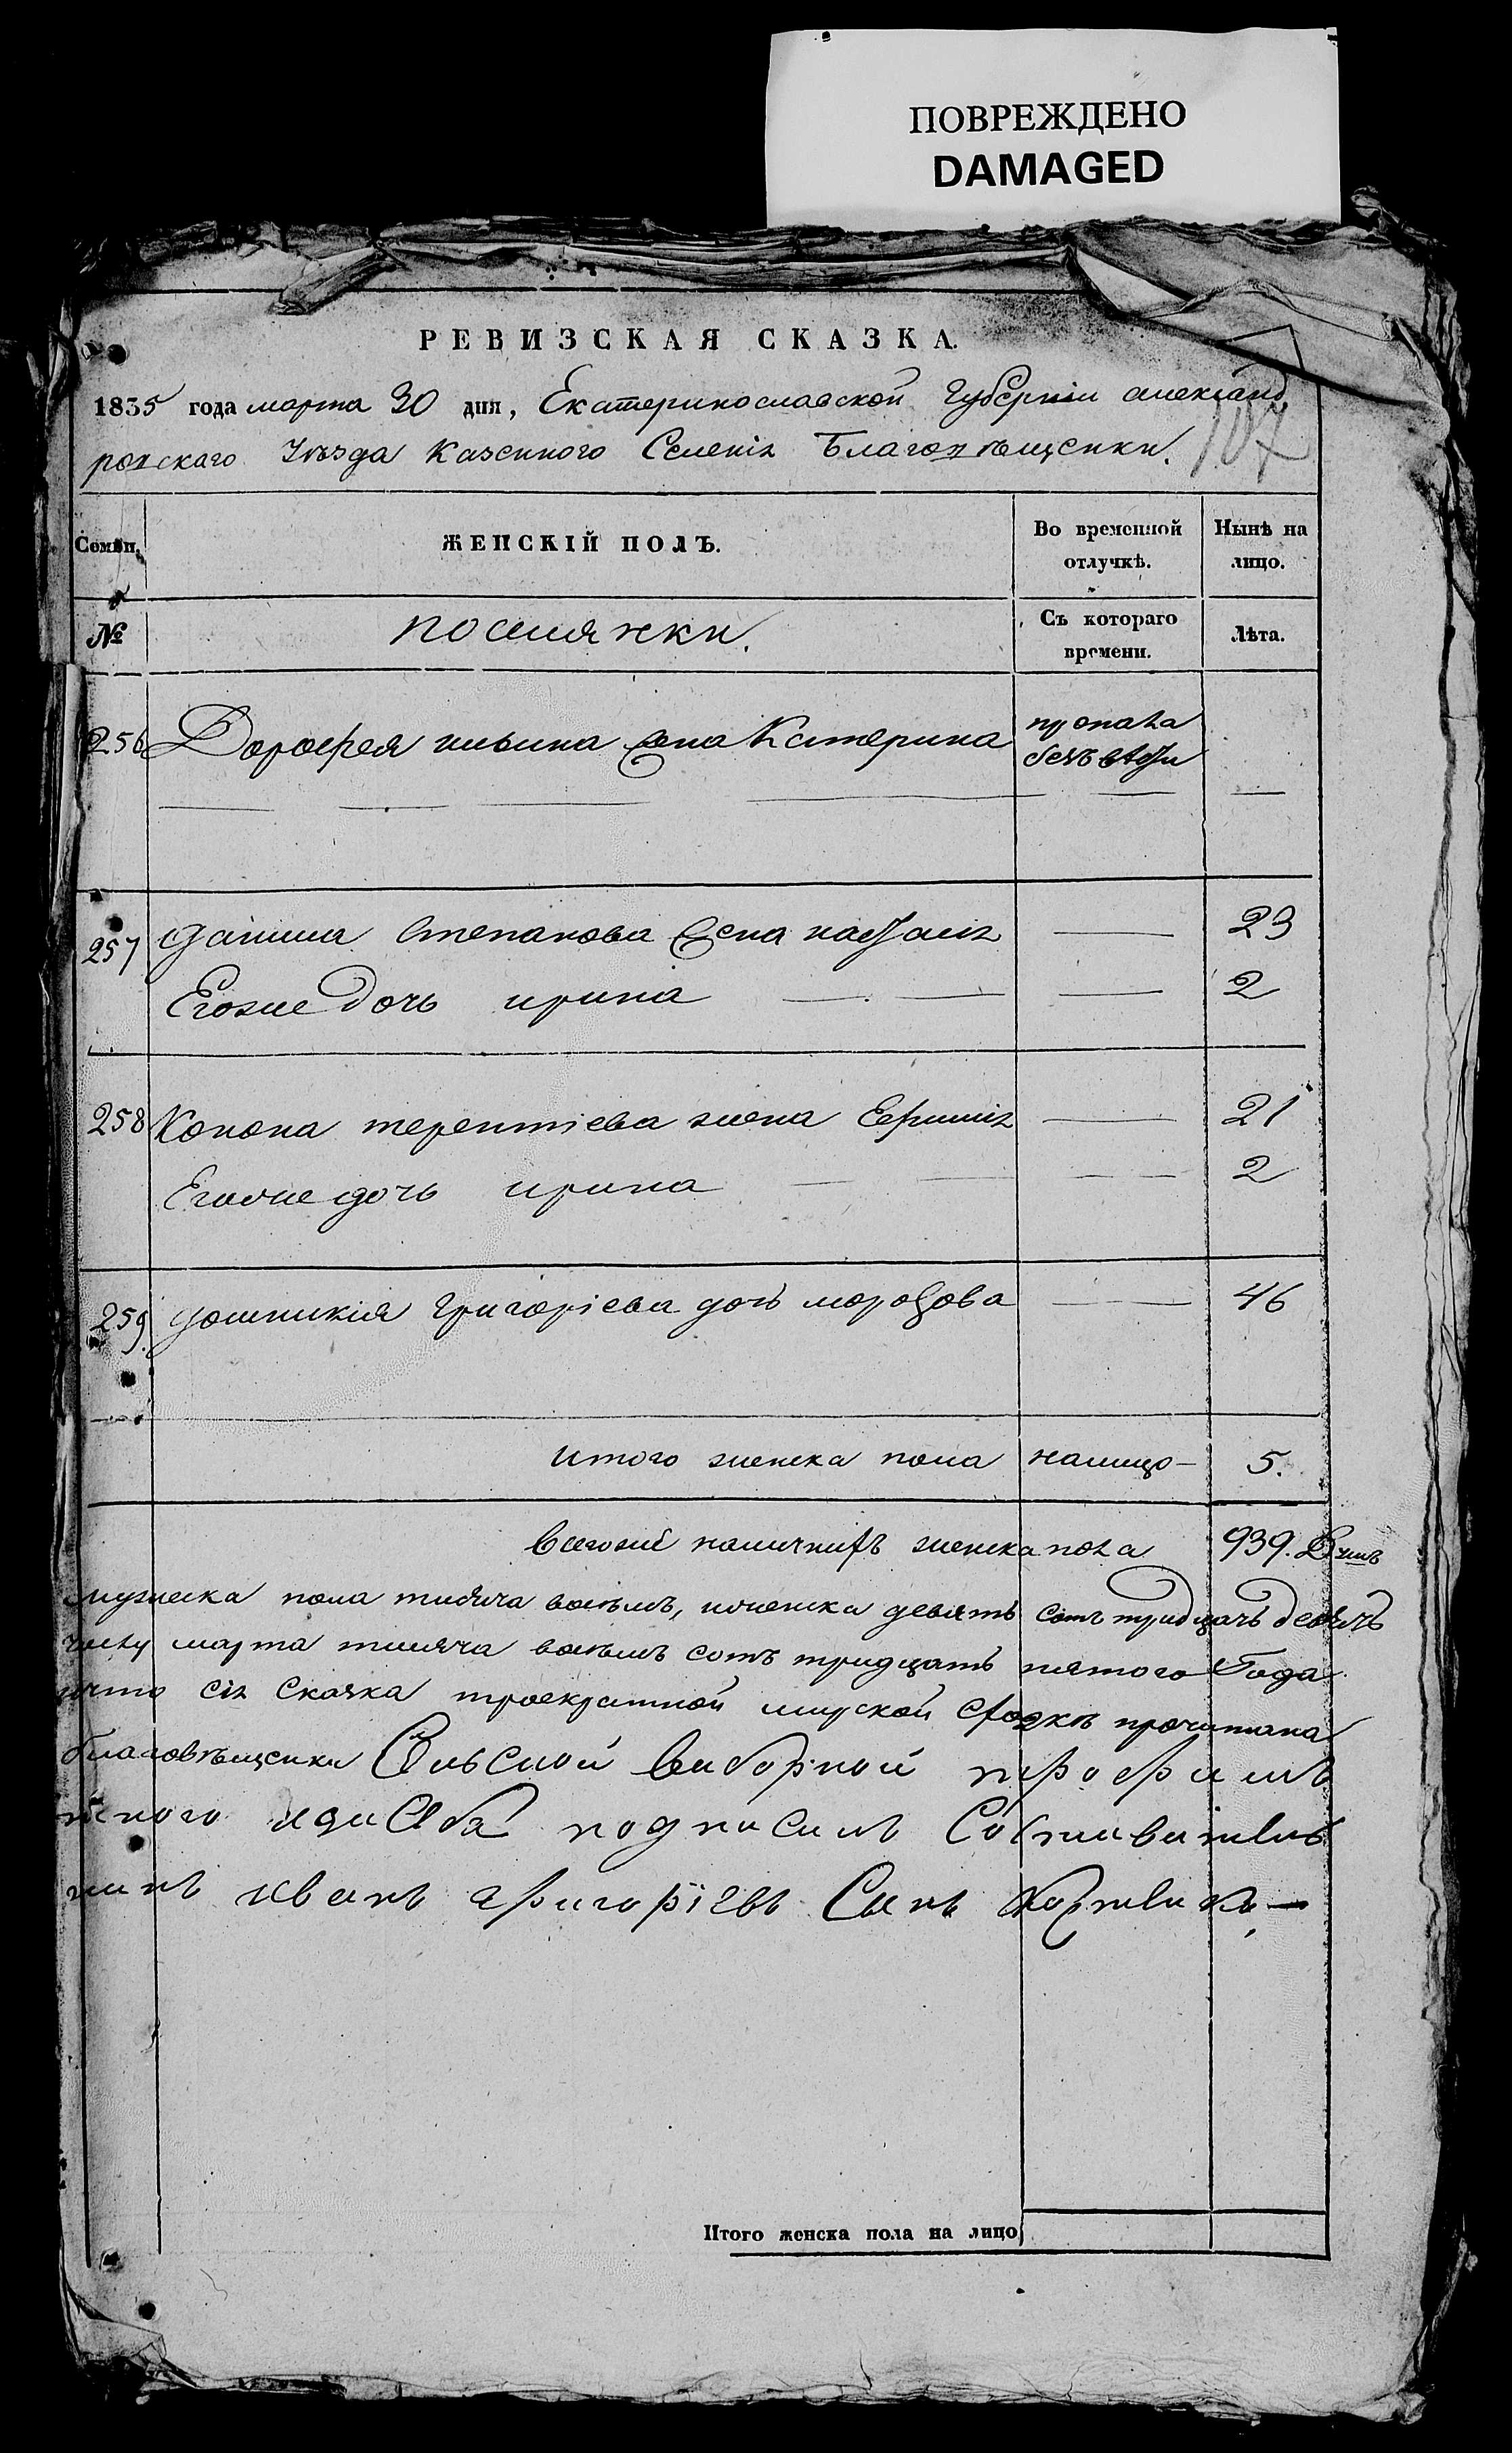 ПОВРЕЖДЕНО
DAMAGED
РЕВИЗСКАЯ СКАЗКА.
1835 года марта 30 дня, Екатеринославской Губерніи александ
ровскаго Уѣзда казенного Селенія Благовѣщенки.
107
Семьи. ЖЕНСКІЙ ПОЛЪ. Во временной отлучкѣ. Нынѣ на лицо.
№ поселянки. Съ котораго времени. Лѣта.
256 Дорофея ильина жена Катерина пропала безъ вѣсти
257 Данила Степанова жена наталія 23
Егоже дочь ирина 2
258 Конона терентіева жена Ефимія 21
Егоже дочь ирина 2
259. григоріева дочь морозова 46
итого женска пола налицо 5.
Всегоже наличныхъ женска пола 939. Душъ
мужеска пола тысяча восемь, иженска девять сотъ тридцать девять
числу марта тысяча восемь сотъ тридцать пятого Года
ичто сія Сказка троекратной мирской сходкѣ прочитана
благовѣщенки выборной трофимъ
подписалъ
иванъ григоріевъ Сынъ
Итого женска пола на лицо